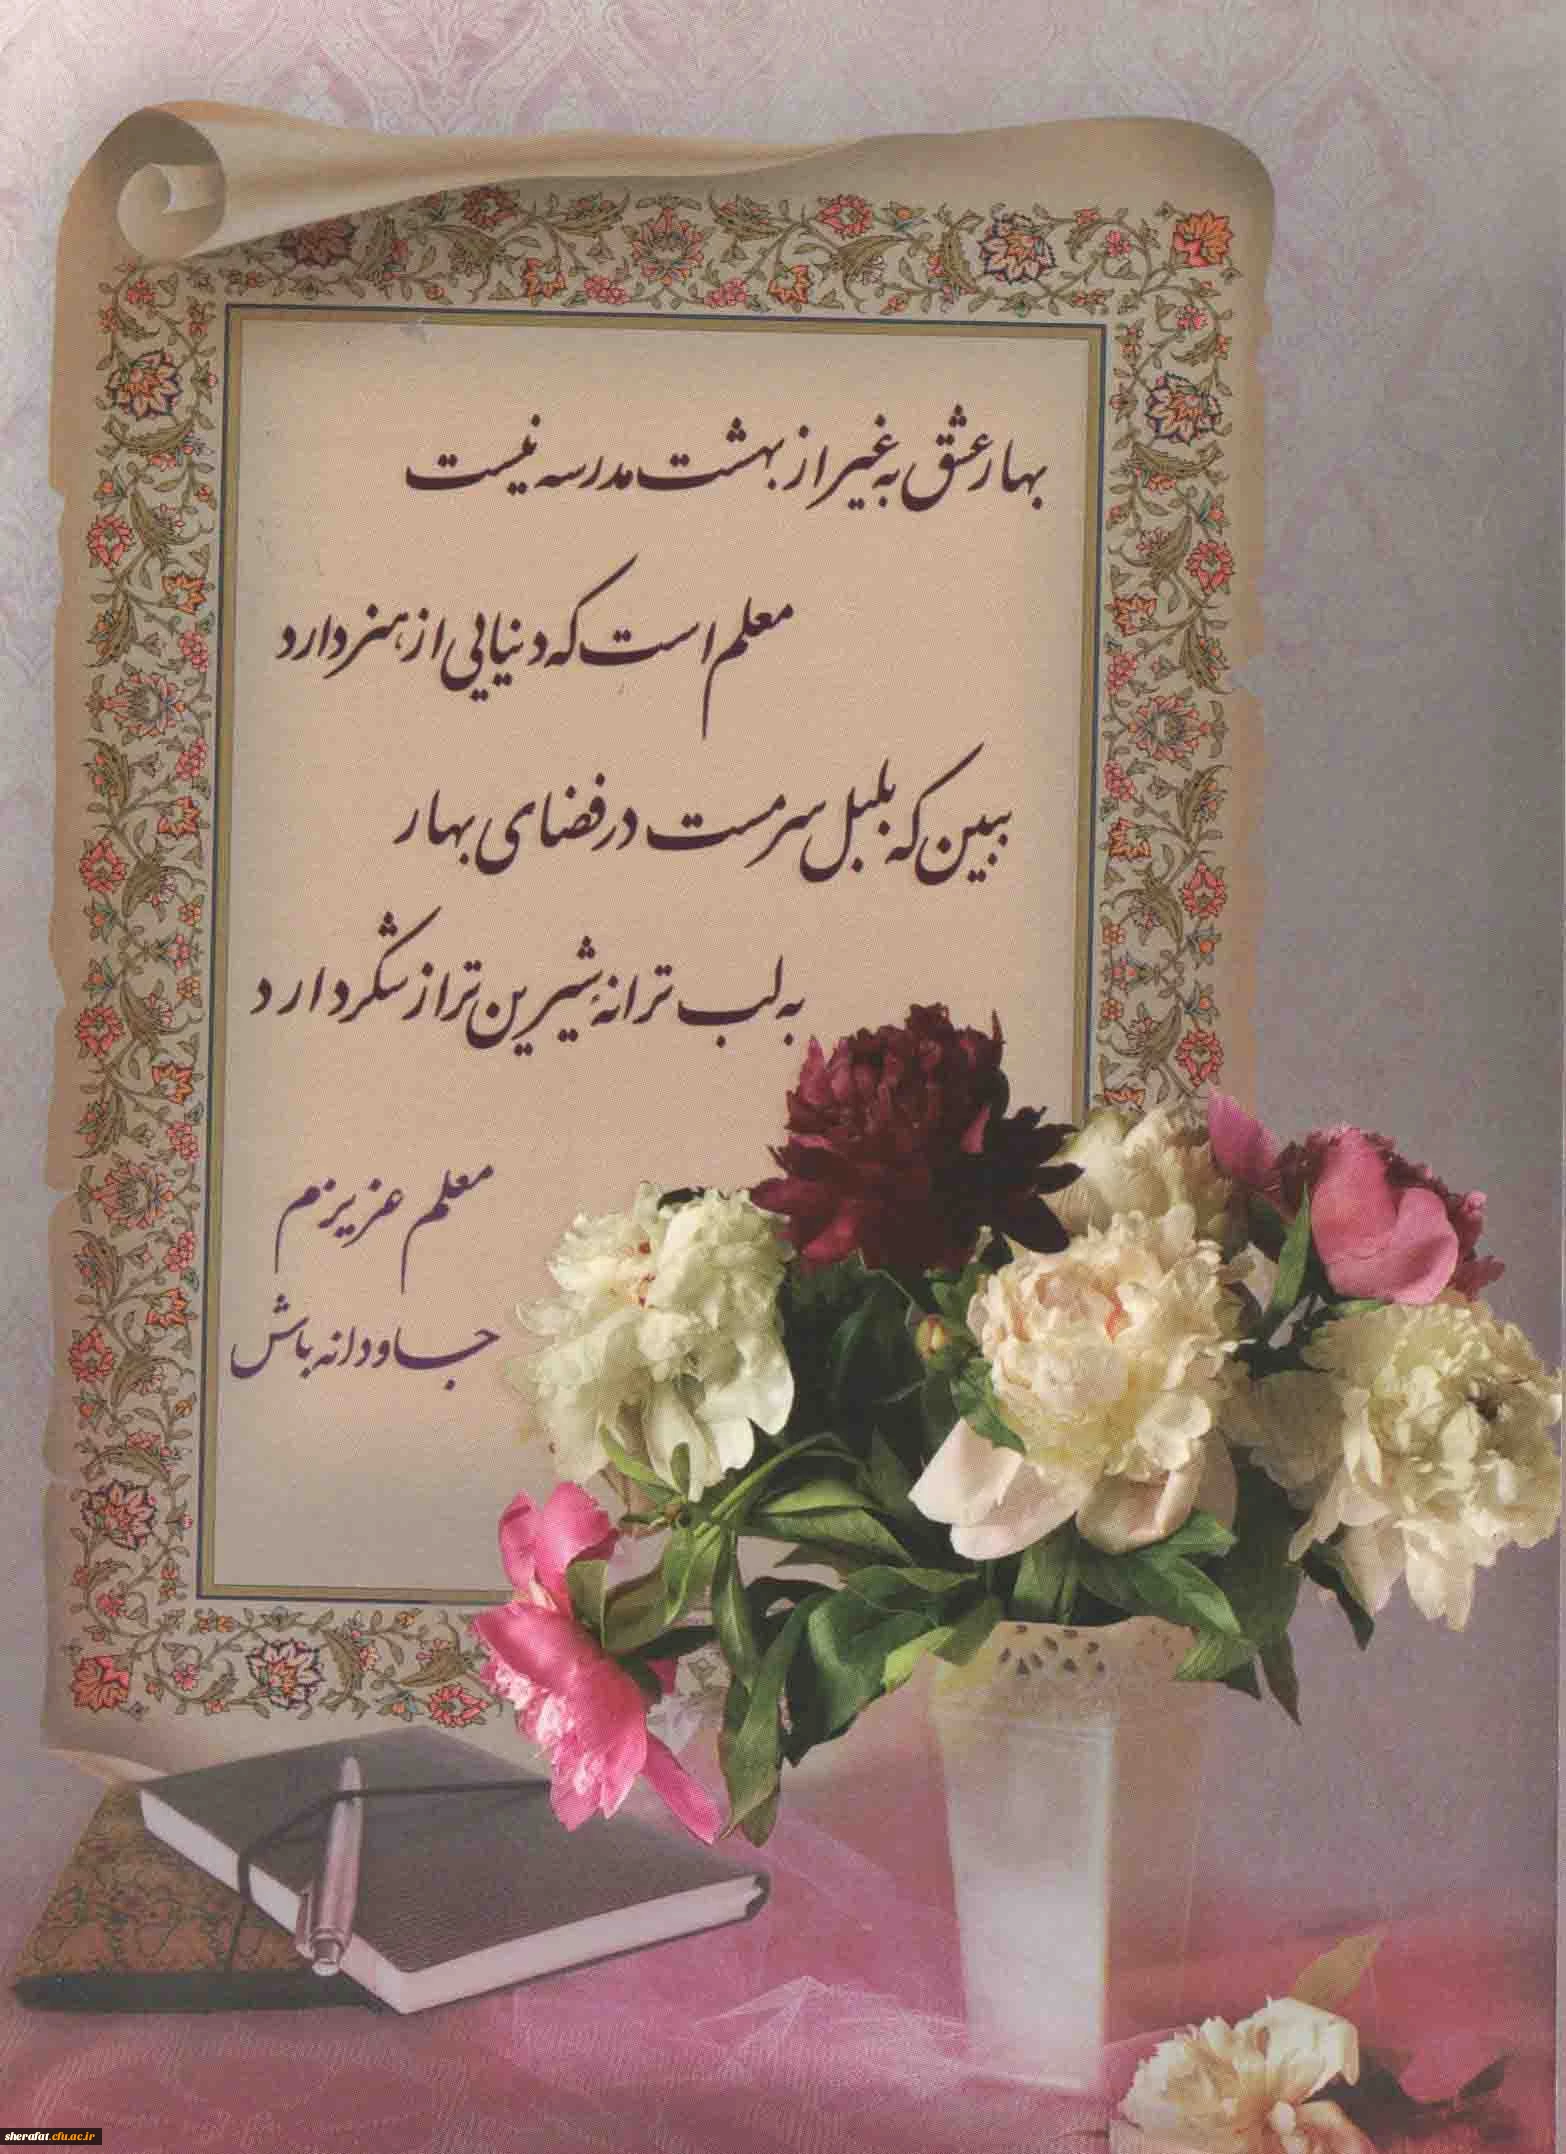 بهار عشق به غیر از بهشت مدرسه نیست
معلم است که دنیایی از هنر دارد
ببین که بلبل سرمست در فضای بهار
به لب ترانهٔ شیرین تر از شکر دارد
معلم عزیزم
جاودانه باش
sherafat.cfu.ac.ir